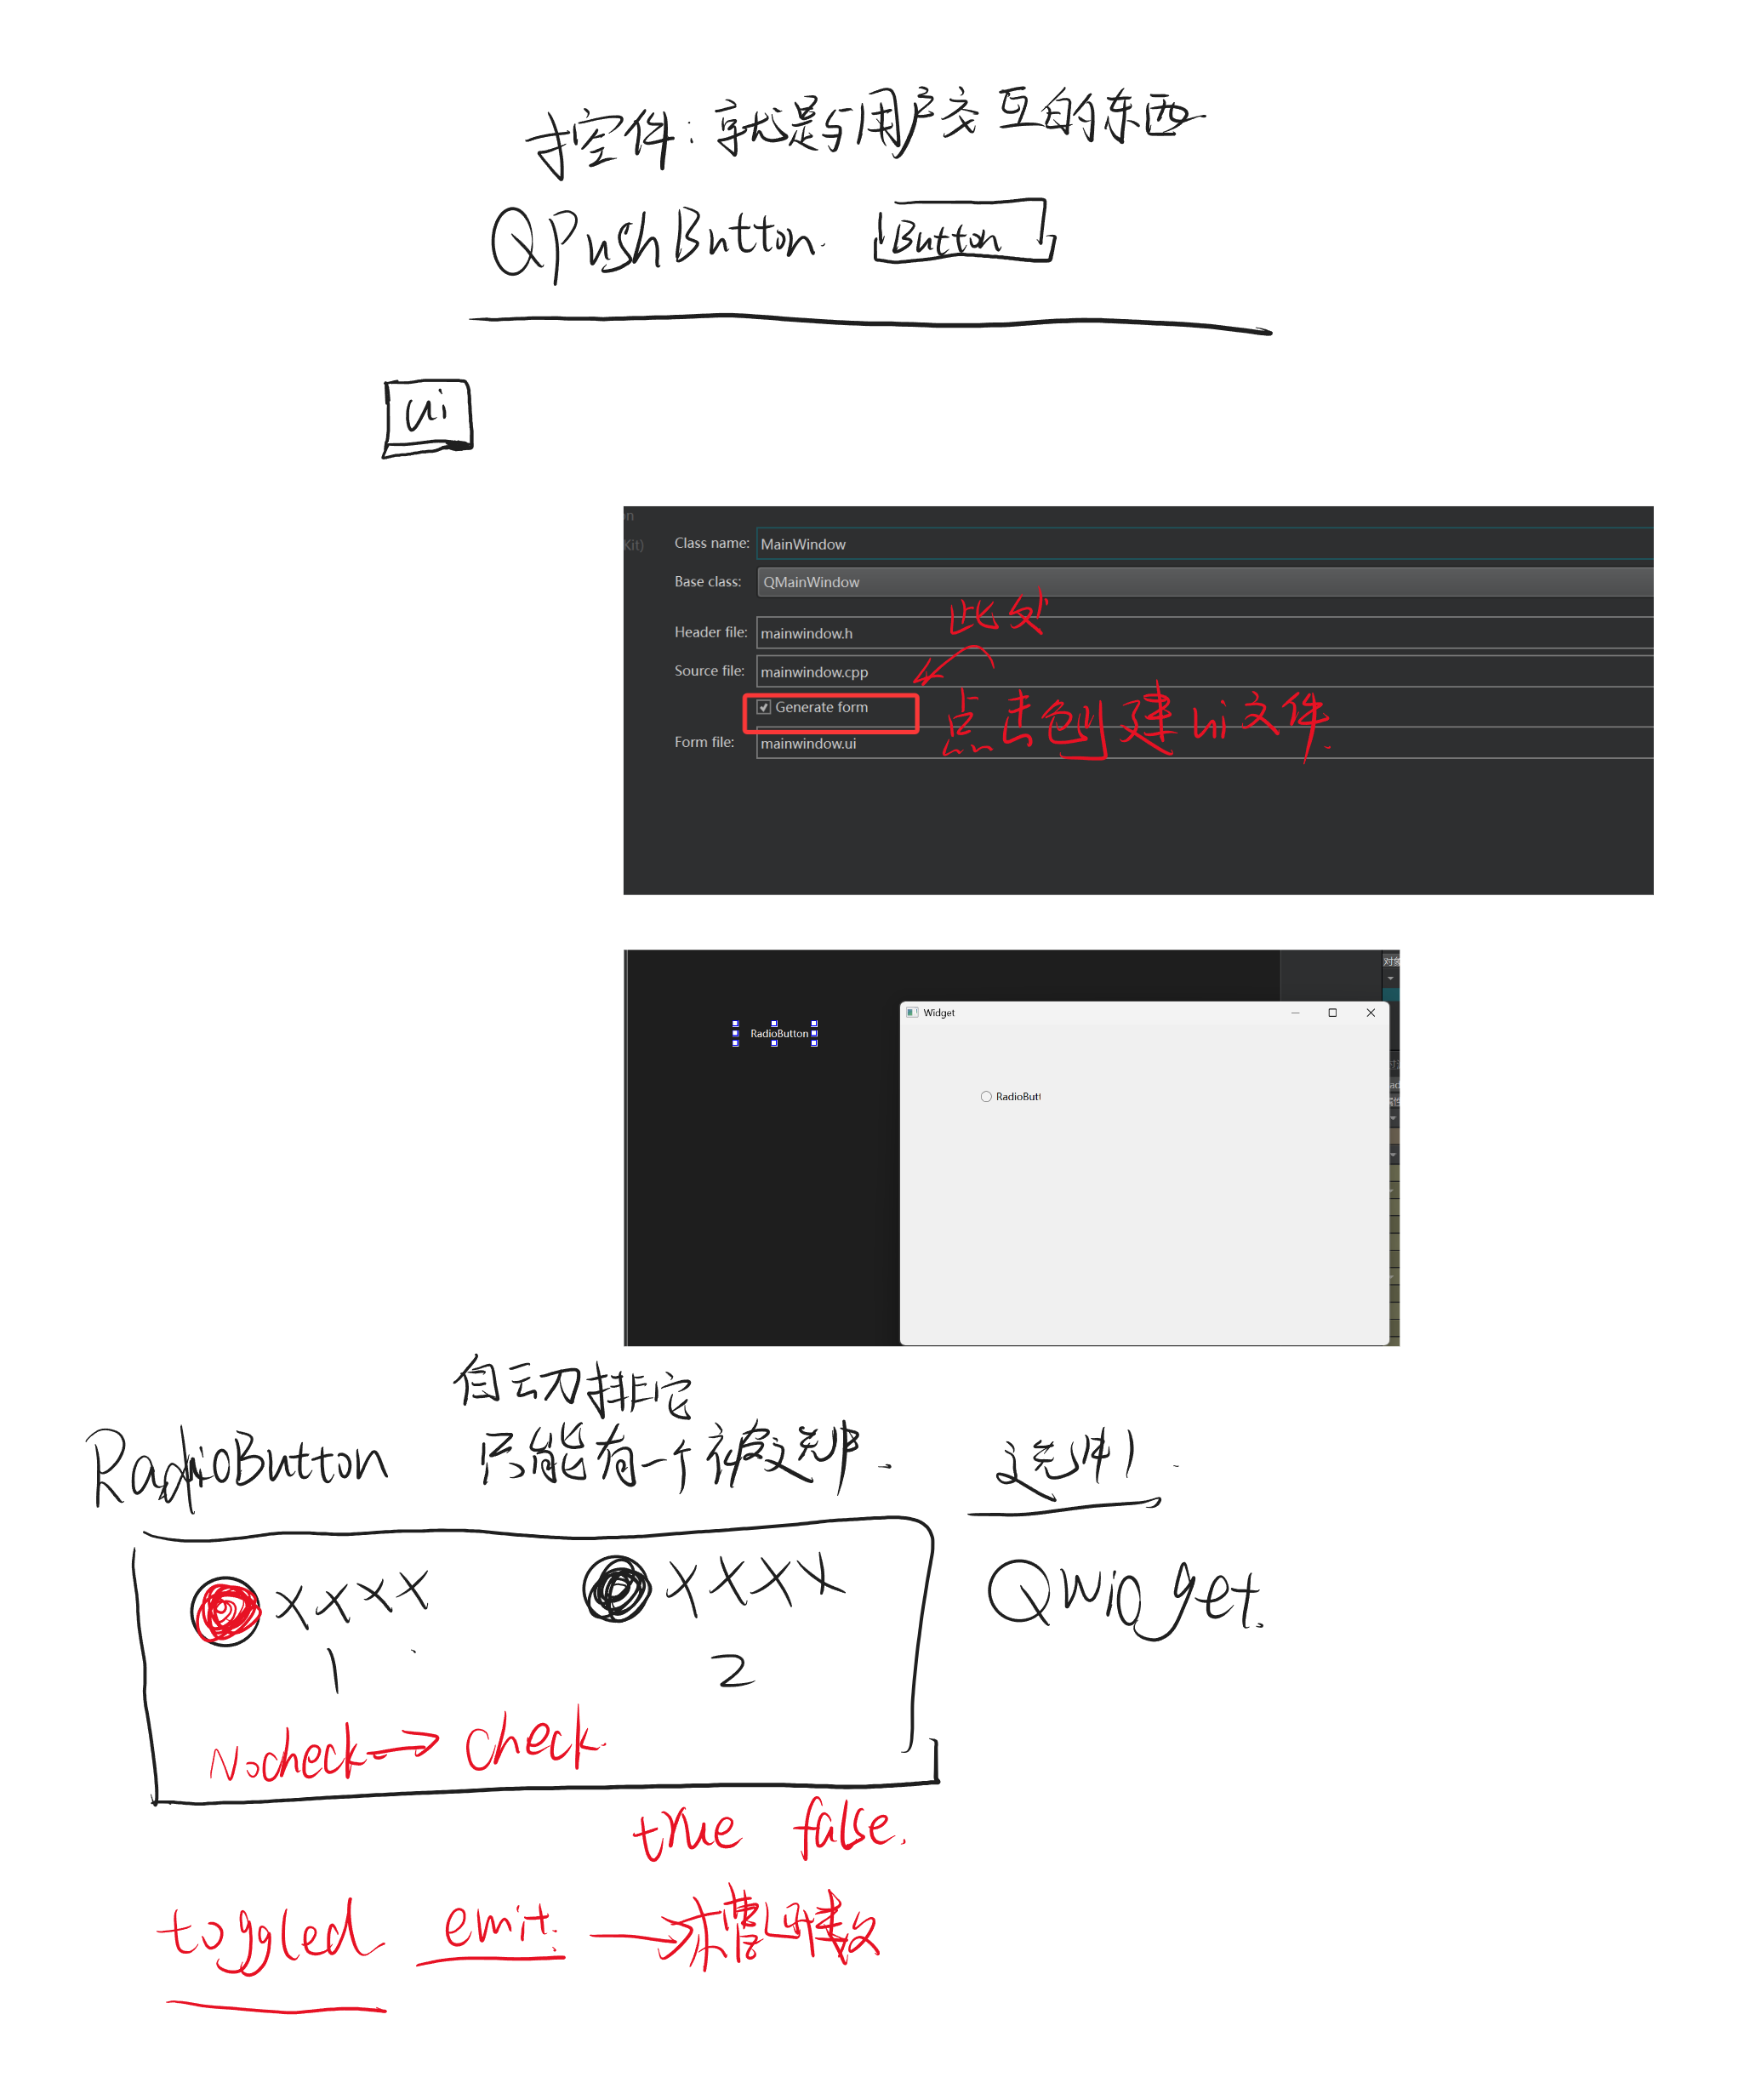 控件:就是与用户交互的东西
QPushButton. Button
ui
on
Kit)
Class name: MainWindow
Base class: QMainWindow
此处
Header file: mainwindow.h
Source file: mainwindow.cpp
Generate form
点击创建ui文件.
Form file: mainwindow.ui
对象
RadioButton
Widget
RadioButt
自动排它
RadioButton 只能有一个被选中. 选中1.
xxxx xxxx QWidget.
1 2
Nocheck→check.
true false.
toggled emit. →槽函数